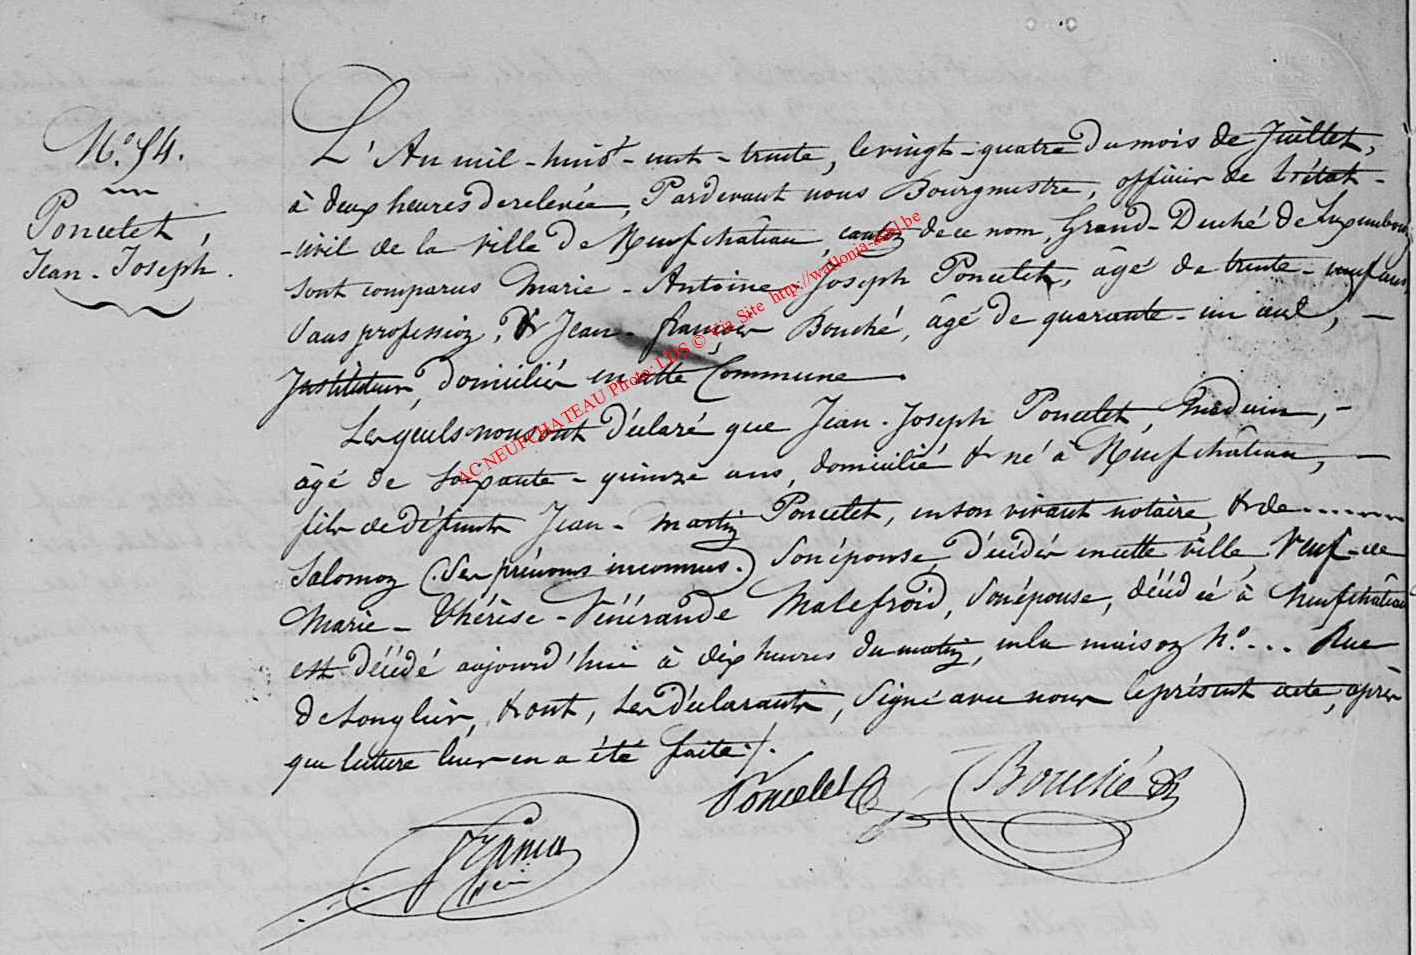 N.° 54.
Poncelet,
Jean-Joseph.
L'An mil-huit-cent-trente, le vingt-quatre du mois de Juillet,
à deux heures de relevée, Pardevant nous Bourgmestre, officier de l'état-
-civil de la ville de Neufchâteau, canton de ce nom, Grand-Duché de Luxembourg
sont comparus Marie-Antoine Joseph Poncelet, âgé de trente-neuf ans,
sans profession, & Jean-françois Bouché, âgé de quarante-un ans,
Instituteur, domiciliés en cette Commune.
Lesquels nous ont déclaré que Jean-Joseph Poncelet, médecin,
âgé de soixante-quinze ans, domicilié & né à Neufchâteau,
fils de défunts Jean-Martin Poncelet, en son vivant notaire, & de ........
Salomon (Ses prénoms inconnus.) son épouse, décédés en cette ville, Veuf de
Marie-Thérèse-Vénérande Malefroid, son épouse, décédée à Neufchâteau
est décédé aujourd'hui à dix heures du matin, en la maison N.° ... Rue
de Longlier, & ont, les déclarants, signé avec nous le présent acte, après
que lecture leur en a été faite./.
Poncelet Bouché
AC NEUFCHATEAU Photo: LDS © Via Site http://wallonia-asbl.be